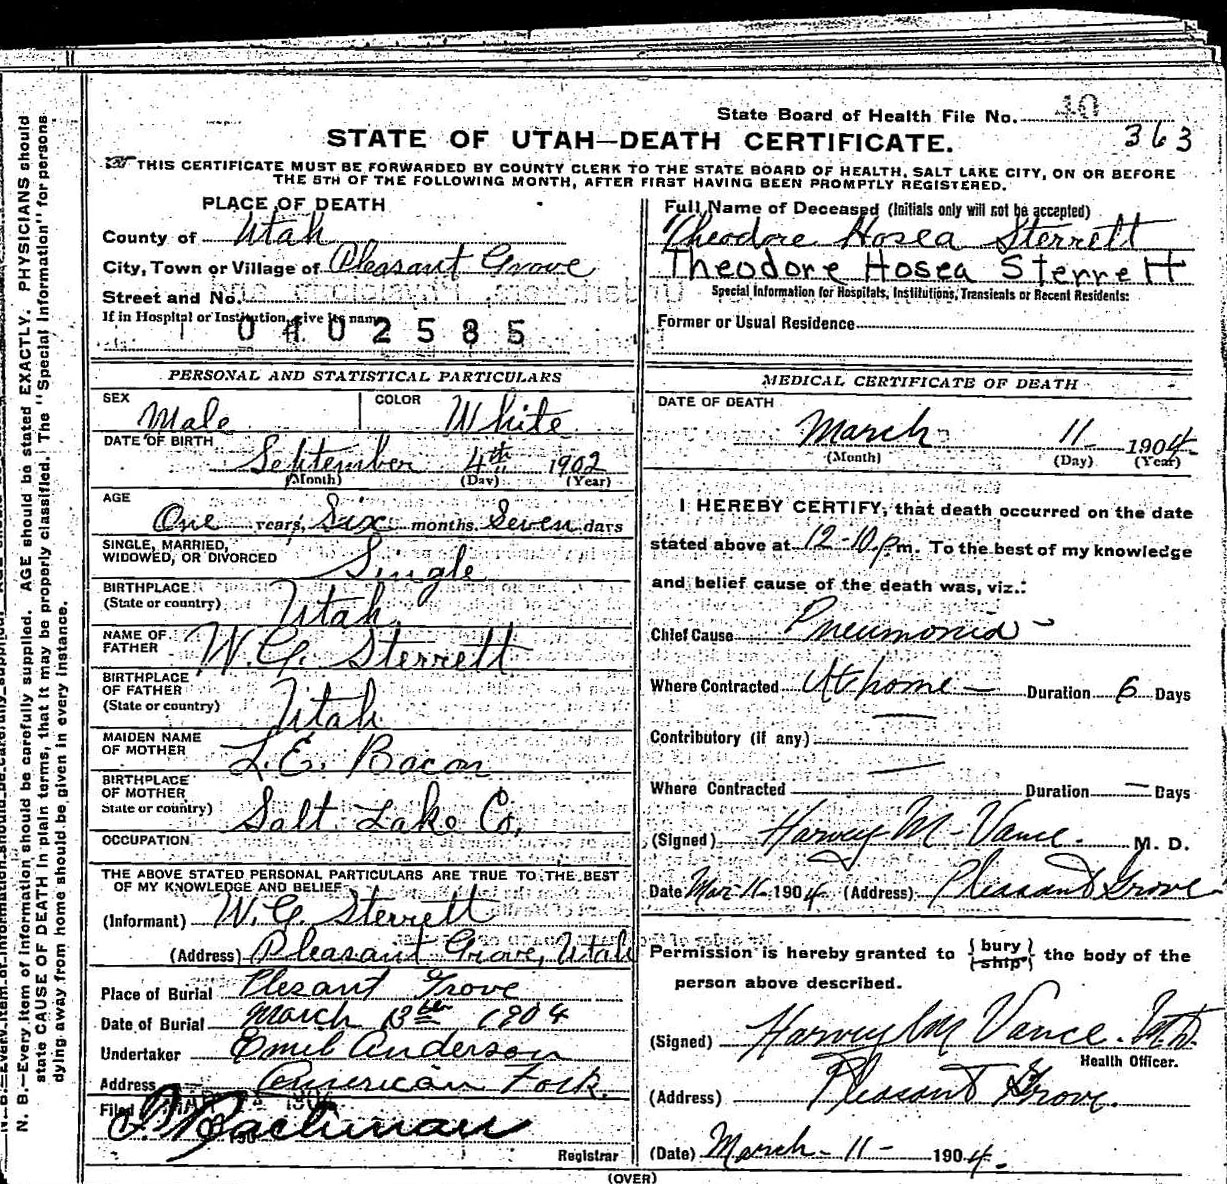 State Board of Health File No. 40
363
STATE OF UTAH—DEATH CERTIFICATE.
THIS CERTIFICATE MUST BE FORWARDED BY COUNTY CLERK TO THE STATE BOARD OF HEALTH, SALT LAKE CITY, ON OR BEFORE
THE 5TH OF THE FOLLOWING MONTH, AFTER FIRST HAVING BEEN PROMPTLY REGISTERED.
PLACE OF DEATH
County of Utah
City, Town or Village of Pleasant Grove
Street and No.
If in Hospital or Institution, give its name
0402585
PERSONAL AND STATISTICAL PARTICULARS
SEX Male COLOR White
DATE OF BIRTH
September 4th 1902
(Month) (Day) (Year)
AGE
One years, Six months, Seven days
SINGLE, MARRIED,
WIDOWED, OR DIVORCED Single
BIRTHPLACE
(State or country) Utah
NAME OF
FATHER W. G. Sterrett
BIRTHPLACE
OF FATHER
(State or country) Utah
MAIDEN NAME
OF MOTHER L. E. Bacon
BIRTHPLACE
OF MOTHER
State or country) Salt Lake Co.
OCCUPATION
THE ABOVE STATED PERSONAL PARTICULARS ARE TRUE TO THE BEST
OF MY KNOWLEDGE AND BELIEF
(Informant) W. G. Sterrett
(Address) Pleasant Grove, Utah
Place of Burial Plesant Grove
Date of Burial March 13th 1904
Undertaker Emil Anderson
Address American Fork.
Filed
Bachman
190
Registrar
Full Name of Deceased (Initials only will not be accepted)
Theodore Hosea Sterrett
Theodore Hosea Sterrett
Special Information for Hospitals, Institutions, Transients or Recent Residents:
Former or Usual Residence
MEDICAL CERTIFICATE OF DEATH
DATE OF DEATH
March 11 1904
(Month) (Day) (Year)
I HEREBY CERTIFY, that death occurred on the date
stated above at 12-10 p.m. To the best of my knowledge
and belief cause of the death was, viz.:
Chief Cause Pneumonia
Where Contracted At home Duration 6 Days
Contributory (if any)
Where Contracted Duration — Days
(Signed) Harvey M. Vance. M. D.
Date Mar-11-1904 (Address) Pleasant Grove
Permission is hereby granted to {bury ship} the body of the
person above described.
(Signed) Harvey M Vance. M.D.
Health Officer.
(Address) Pleasant Grove.
(Date) March - 11 - 1904.
(OVER)
N. B.—Every item of information should be carefully supplied. AGE should be stated EXACTLY. PHYSICIANS should
state CAUSE OF DEATH in plain terms, that it may be properly classified. The "Special Information" for persons
dying away from home should be given in every instance.